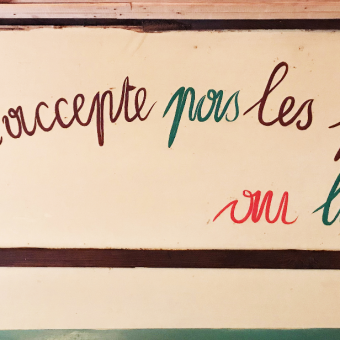 accepte pas les
ou